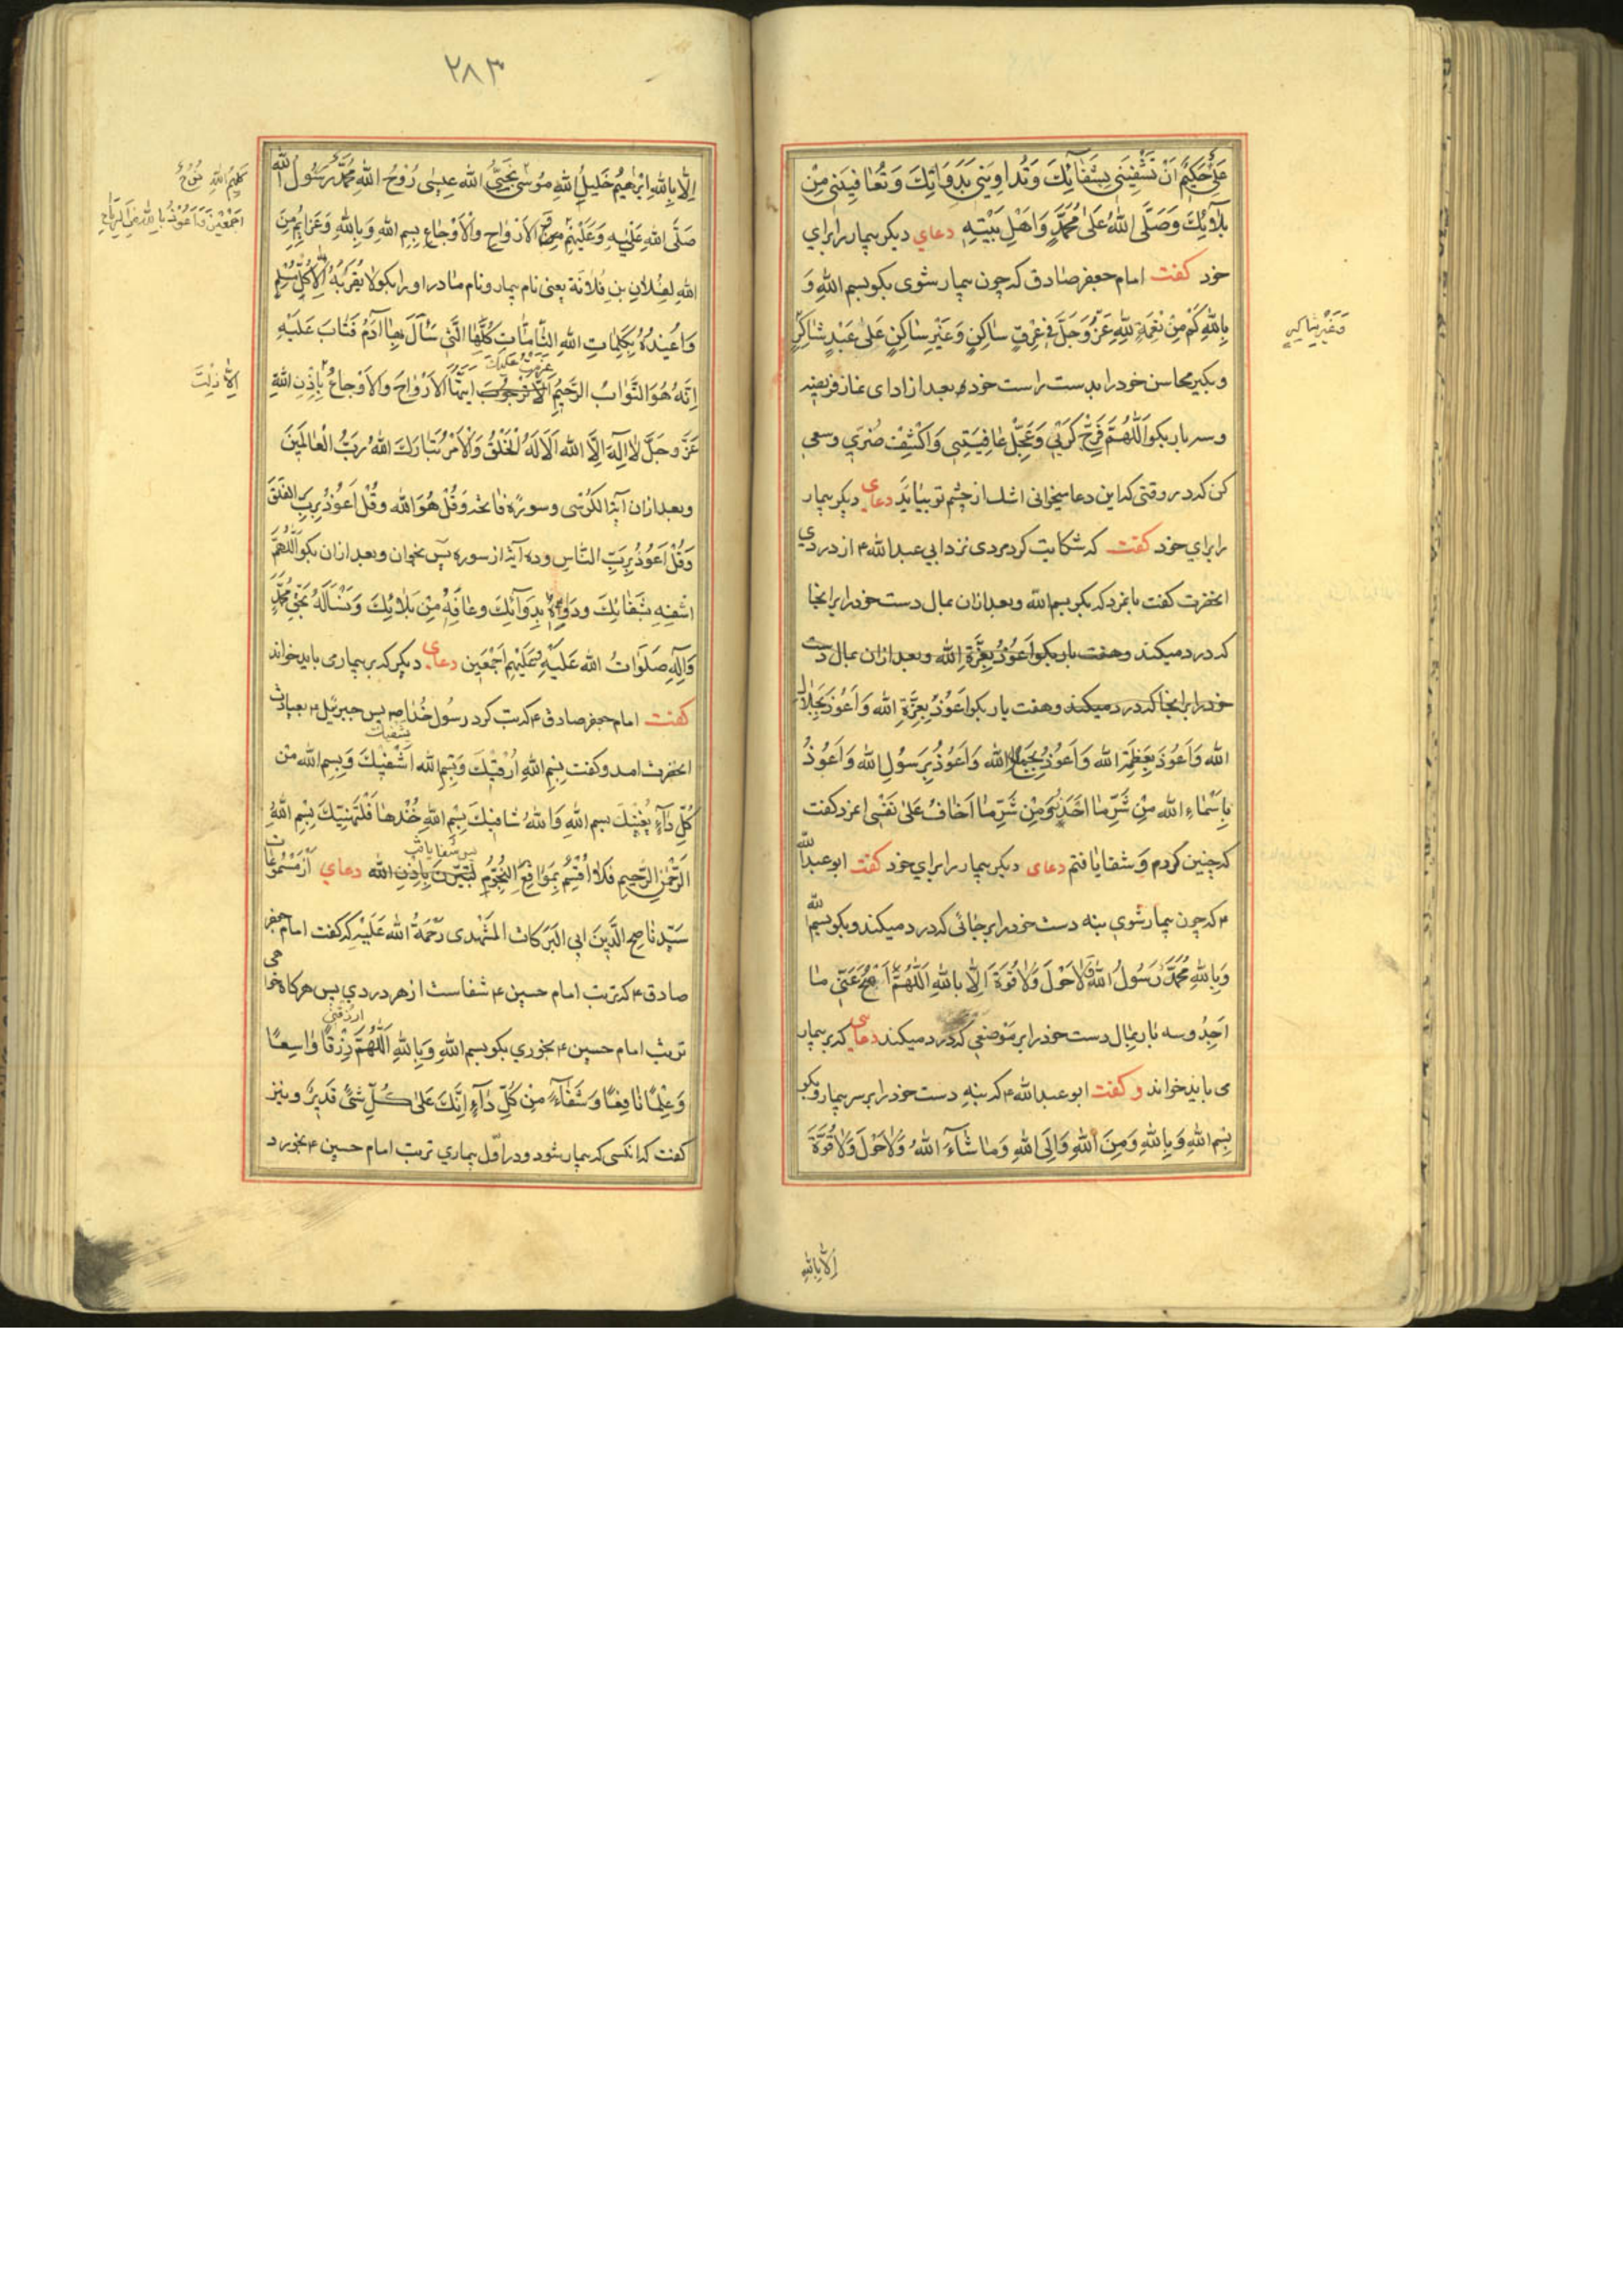 عَلِیٌّ حَکِیمٌ اَنْ تَشْفِیَنی بِشَفٰآئِکَ وَتُداوِیَنی بِدَوَآئِکَ وَتُعٰافِیَنی مِنْ
بَلٰآئِکَ وَصَلَّی اللّٰهُ عَلٰی مُحَمَّدٍ وَاَهْلِ بَیْتِهِ دعای دیکر بیمار را برای
خود کفت امام جعفر صادق که چون بیمار شوی بکو بسم اللهِ وَ
بِاللّٰهِ کَمْ مِنْ نِعْمَةٍ لِلّٰهِ عَزَّوَجَلَّ فی عِرْقٍ ساکِنٍ وَغَیْرِ سٰاکِنٍ عَلٰی عَبْدٍ شٰاکِرٍ
وَغَیْرِ شٰاکِرٍ
وبکیر محاسن خود را بدست راست خود بعد از ادای نماز فریضه
وسه بار بکو اَللّٰهُمَّ فَرِّجْ کَرْبی وَعَجِّلْ عٰافِیَتی وَاکْشِفْ ضُرّی وسعی
کن که در وقتی که این دعا میخوانی اشک از چشم تو بیاید دعای دیکر بیمار
را برای خود کفت که شکایت کرد مردی نزد ابی عبد الله ۴ از دردی
انحضرت کفت بانمرد که بکو بسم الله وبعد ازان بمال دست خود را برانجا
که درد میکند وهفت بار بکو اَعُوذُ بِعِزَّةِ الله وبعد ازان بمال دست
خود را برانجا که درد میکند وهفت بار بکو اَعُوذُ بِعِزَّةِ الله وَاَعُوذُ بِجَلٰال
الله وَاَعُوذُ بِعَظَمَةِ الله وَاَعُوذُ بِجَمٰالِ الله وَاَعُوذُ بِرَسُولِ الله وَاَعُوذُ
بِاَسْمٰاءِ الله مِنْ شَرِّ مٰا اَحْذَرُ وَمِنْ شَرِّ مٰا اَخٰافُ عَلٰی نَفْسی انمرد کفت
که چنین کردم وَشفا یٰافتم دعای دیکر بیمار را برای خود کفت ابو عبد الله
۴ که چون بیمار شوی بنه دست خود را بر جائی که درد میکند وبکو بسم الله
وَبِاللّٰهِ مُحَمَّدٌ رَسُولُ اللّٰهِ وَلٰاحَوْلَ وَلٰاقُوَةَ اِلّٰا بِاللّٰهِ اَللّٰهُمَّ امْحُ عَنّی مٰا
اَجِدُ وسه بار بمال دست خود را بر موضعی که درد میکند دعای که بر بیمار
می باید خواند و کفت ابو عبد الله ۴ که بنه دست خود را بر سر بیمار وبکو
بِسْمِ اللّٰهِ وَبِاللّٰهِ وَمِنَ اللّٰهِ وَاِلَی اللّٰهِ وَمٰا شٰآءَ اللّٰهُ وَلٰاحَوْلَ وَلٰاقُوَّةَ
اِلّٰا بِاللّٰهِ
۲۸۳
اِلّٰا بِاللّٰهِ اِبْرٰهیمُ خَلیلُ اللّٰهِ مُوسٰی نَجِیُّ اللّٰه عیسٰی رُوحُ اللّٰهِ مُحَمَّدٌ رَسُولُ اللّٰه
کَلِیمُ اللّٰهِ نُوحُ
صَلَّی اللّٰه عَلَیْهِ وَعَلَیْهِمْ مِن الاَرْوٰاحِ وَالاَوْجٰاعِ بِسِمِ اللّٰهِ وَبِاللّٰهِ وَعَزٰایِمُ مِنَ
اَجْمَعْینَ وَاَعُوذُ بِاللّٰهِ مِنَ الرِّیٰاحِ
اللّٰهِ لِفُلٰانِ بنِ فُلٰانَة یعنی نام بیمار ونام مٰادر او را بکو لٰایَقْرَبُهُ اِلّٰا کُلُّ مُسْلِمٍ
وَاُعیذُهُ بِکَلِمٰاتِ اللّٰهِ التّٰامّٰاتِ کُلِّهٰا الَّتی سَأَلَ بِهٰا آدَمُ فَتٰابَ عَلَیْهِ
عزمت علیک
اِنَّهُ هُوَ التَّوّٰابُ الرَّحیمُ اَلّٰا اَیَّتُهَا الاَرْوٰاحَ وَالاَوْجٰاعُ بِاِذْنِ اللّٰهِ
عَزَّ وجَلَّ لٰااِلٰهَ اِلَّا اللّٰه اَلٰا لَهُ الْخَلْقُ وَالْاَمْرُ تَبٰارَکَ اللّٰهُ رَبُّ الْعٰالَمینَ
وبعد ازان آیة الکُرْسی وسورهٔ فٰاتحه وَقُلْ هُوَ اللّٰه وقُلْ اَعُوذُ بِرَبِّ الفَلَقِ
وَقُلْ اَعُوذُ بِرَبِّ النّٰاسِ وده آیه از سوره یسٓ بخوان وبعد ازان بکو اَللّٰهُمَّ
اشْفِهِ بِشَفٰائِکَ ودَاوِهِ بِدَوٰآئِکَ وعٰافِهِ مِنْ بَلٰائِکَ وَنَسْأَلُهُ بِحَقِّ مُحَمَّدٍ
وَآلِهِ صَلَوٰاتُ اللّٰه عَلَیْهِ وَعَلَیْهِمْ اَجْمَعین دعای دیکر که بر بیمار می باید خواند
کفت امام جعفر صادق ۴ که تب کرد رسول خُدا ص پس جبرئیل ۴ بعیادت
یشفیک
انحضرت امد وکفت بِسْمِ اللّٰهِ اُرْقیکَ وَبِسْمِ اللّٰه اَشْفیکَ وَبِسِمِ اللّٰه مِن
کُلِّ دٰآءٍ یُعْنیکَ بسم اللّٰهِ وَاللّٰهُ شٰافیکَ بِسْمِ اللّٰهِ خُذْهٰا فَلْتَهْنیکَ بِسْمِ اللّٰهِ
پس شفا یافت
الرَّحْمٰنِ الرَّحیمِ فَلٰا اُقْسِمُ بِمَوٰاقِعِ النُّجُومِ لَتَبْرَأَنَّ بِاِذْنِ اللّٰه دعای از مَسْمُوعٰات
سَیّد نٰاصِحُ الدّین ابی البَرَکٰات المَشْهَدی رَحْمَةُ اللّٰه عَلَیْه که کفت امام جعفر
صادق ۴ که تربت امام حسین ۴ شفاست از هر دردی پس هرکاه خواهی
ارزقنی
تربت امام حسین ۴ بخوری بکو بسم اللّٰهِ وَبِاللّٰهِ اَللّٰهُمَّ رِزْقًا وٰاسِعًا
وَعِلْمًا نٰافِعًا وَشَفٰآءً مِنْ کُلِّ دٰآءٍ اِنَّکَ عَلٰی کُلِّ شَیْءٍ قَدیرٌ ونیز
کفت که انکسی که بیمار شود ودر اوّل بیماری تربت امام حسین ۴ بخورد